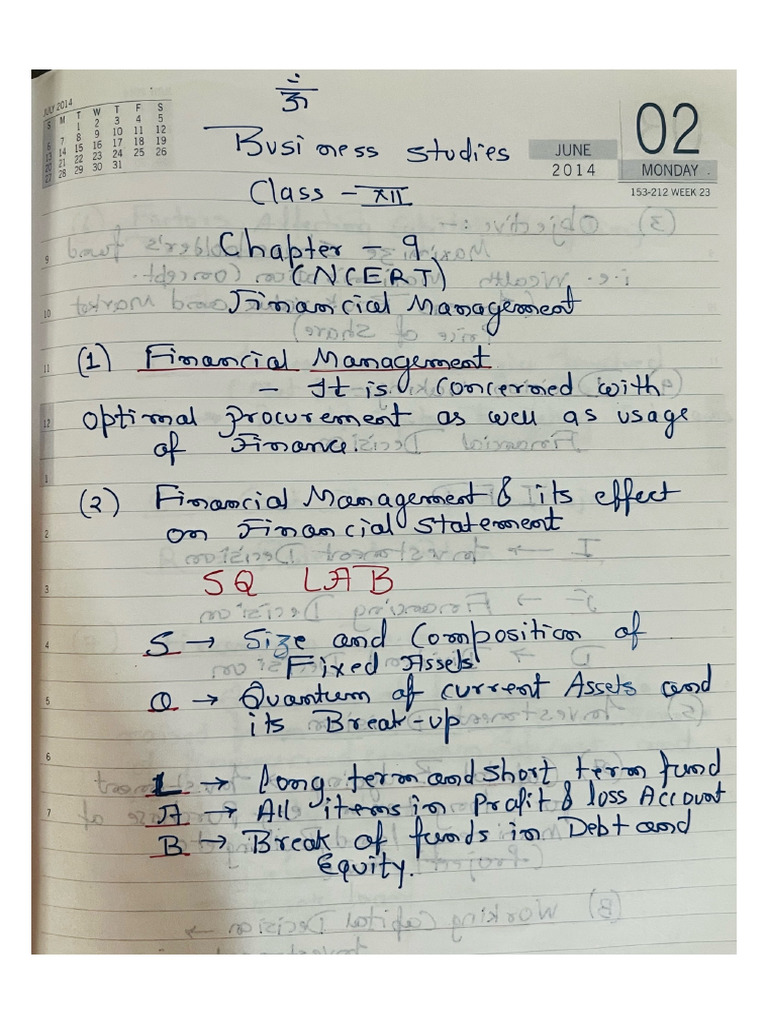 ॐ
JULY 2014
S M T W T F S
1 2 3 4 5
6 7 8 9 10 11 12
13 14 15 16 17 18 19
20 21 22 23 24 25 26
27 28 29 30 31
JUNE
2014
02
MONDAY
153-212 WEEK 23
Business Studies
Class - XII
Chapter - 9
(NCERT)
Financial Management
(1) Financial Management
- It is concerned with
optimal procurement as well as usage
of Finance.
(2) Financial Management & its effect
on Financial statement
SQ LAB
S → Size and Composition of
Fixed Assets
Q → Quantum of current Assets and
its Break-up
L → Long term and short term fund
A → All items in Profit & loss Account
B → Break of funds in Debt and
Equity.
9
10
11
12
1
2
3
4
5
6
7